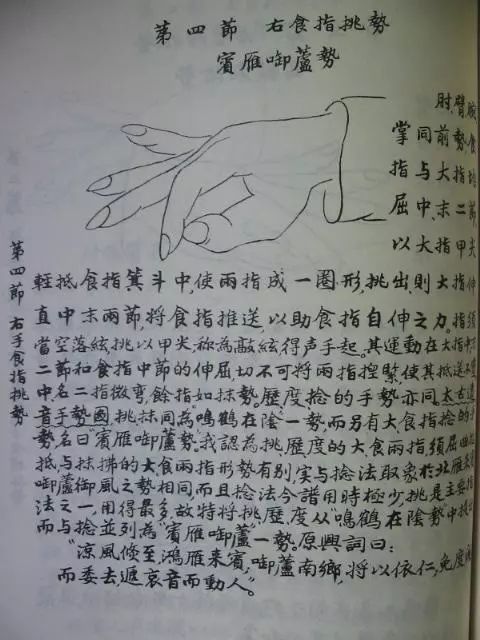 第四節 右食指挑勢
賓雁啣蘆勢
肘、臂、腕
掌同前勢,食
指与大指
屈中、末二節,
以大指甲尖
輕抵食指箕斗中,使兩指成一圈形,挑出,則大指伸
直中末兩節,將食指推送,以助食指自伸之力,指須
當空落絃,挑以甲尖,称為敵絃得声手起。其運動在大指中
二節和食指中節的伸屈,切不可將兩指揑緊,使其抵送不
中、名二指微弯,餘指如抹勢。歷度捻的手勢亦同,太古遺
音手勢圖,挑、抹同為鳴鶴在陰"一勢,而另有大食指捻的手
勢名曰"賓雁啣蘆勢。我認為挑、歷、度的大食兩指,須屈曲
抵,与抹拂的大食兩指形勢有別,实与捻法取象於北雁来
啣蘆御風之勢相同,而且捻法今譜用時極少,挑是主要指
法之一,用得最多,故特將挑、歷、度从"鳴鶴在陰勢"中提
而与捻並列為"賓雁啣蘆"一勢。原興詞曰:
"涼風倏至,鴻雁来賓;啣蘆南鄉,將以依仁,免度
而委去,遞哀音而動人。"
第四節 右手食指挑勢